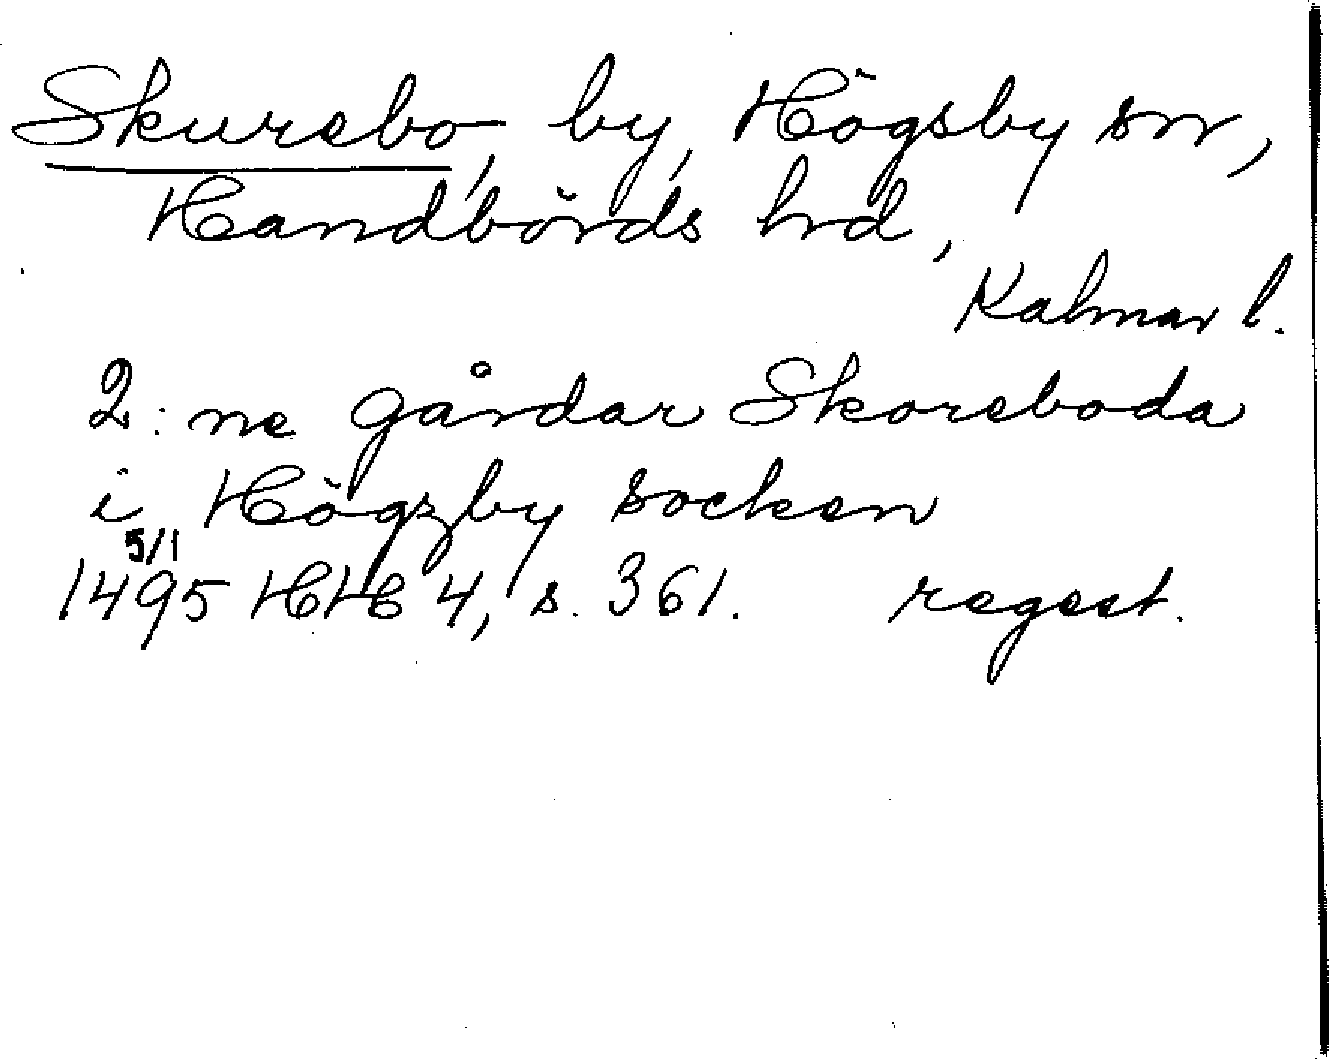 Skurebo, by, Högsby sn,
Handbörds hd,
Kalmar l.
2:ne gårdar Skoreboda
i Högzby socken
5/1
1495 HH 4, s. 361. regest.